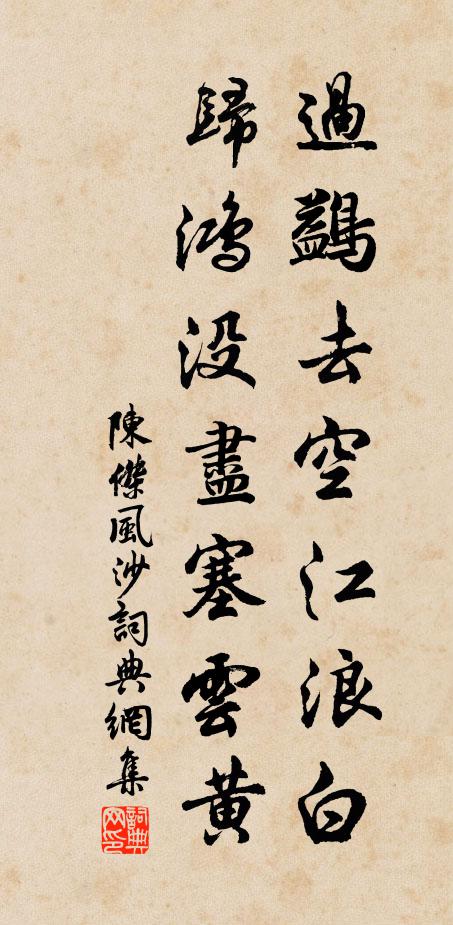 過鷁去空江浪白
歸鴻没盡塞雲黃
陳傑風沙詞典網集
詞典網印